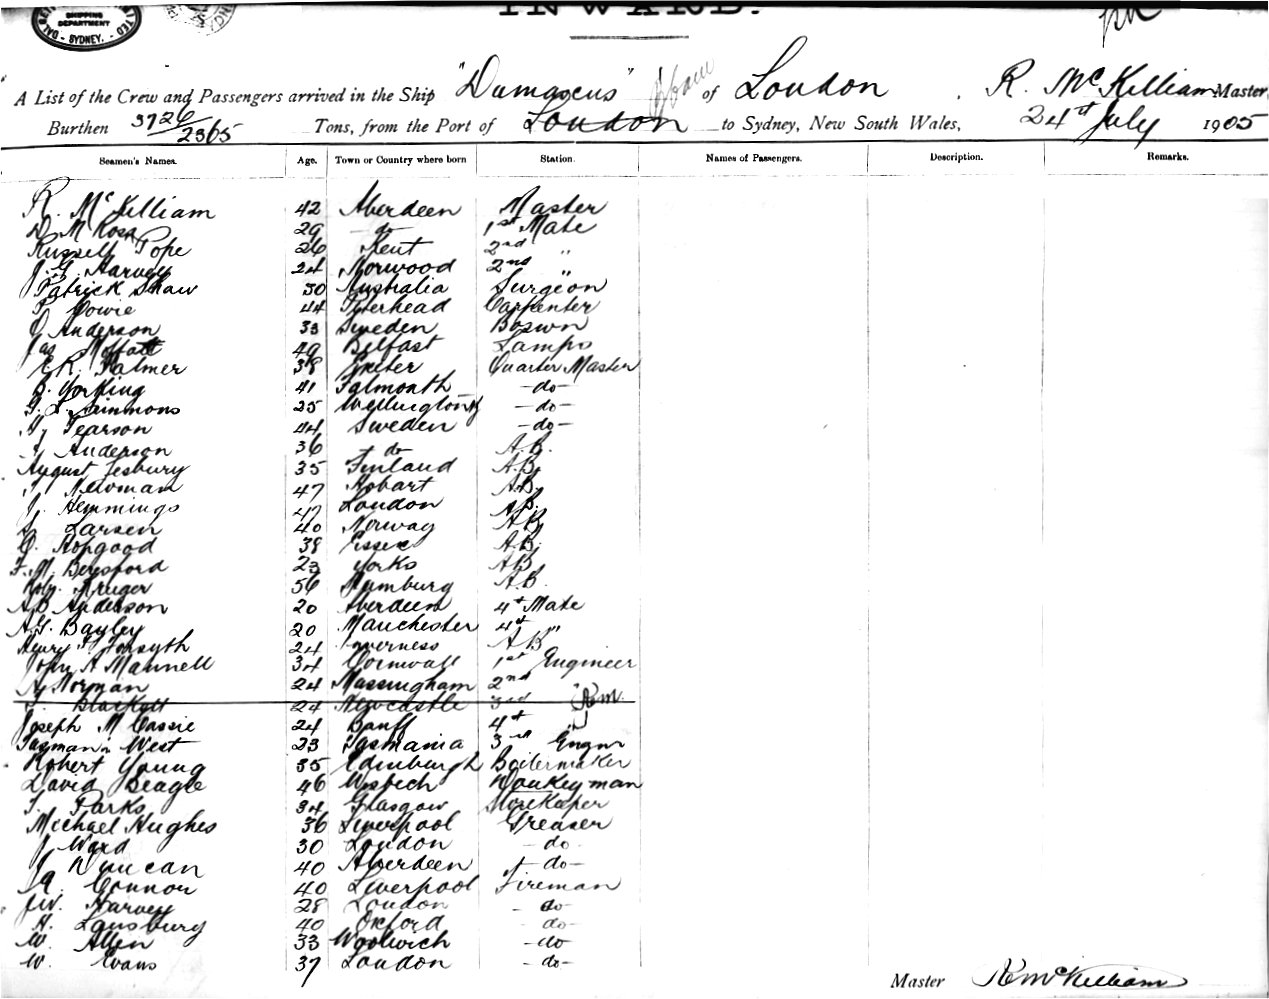 INWARD.
SHIPPING DEPARTMENT
SYDNEY.
A List of the Crew and Passengers arrived in the Ship "Damascus" of London R. McKilliam Master,
Burthen 3726/2365 Tons, from the Port of London to Sydney, New South Wales, 24st July 1905
Seamen's Names. Age. Town or Country where born Station. Names of Passengers. Description. Remarks.
R. McKilliam 42 Aberdeen Master
D. M Ross 29 - do - 1st Mate
Russell Pope 26 Kent 2nd "
J. G. Harvey 24 Norwood 2nd "
Patrick Shaw 30 Australia Surgeon
Cowie 44 Peterhead Carpenter
O Anderson 33 Sweden Boswn
Jas Moffatt 49 Belfast Lamps
E R. Palmer 38 Exeter Quarter Master
B. Yorking 41 Falmouth - do -
G. L. Simmons 25 Wellington - do -
Pearson 44 Sweden - do -
A Anderson 36 - do A.B.
August Jesbury 35 Finland A.B.
Newman 47 Hobart A.B.
J. Hemmings 47 London A.B.
Larsen 40 Norway A.B.
O. Hopgood 38 Essex A.B.
F. M. Beresford 23 Yorks A.B.
Robt. Kruger 56 Hamburg A.B.
A B Anderson 20 Aberdeen 4th Mate
A. G. Bayley 20 Manchester 4th "
Henry Forsyth 24 Inverness A B
John A Mannell 34 Cornwall 1st Engineer
A Norman 24 Massingham 2nd "
Blackett 24 Newcastle 3rd RM
Joseph M Cassie 24 Banff 4th "
Tasman West 23 Tasmania 3rd Engnr
Robert Young 35 Edinburgh Boilermaker
David Beagle 46 Wisbech Donkeyman
T. Parks 34 Glasgow Storekeeper
Michael Hughes 36 Liverpool Greaser
J Ward 30 London - do -
J. Duncan 40 Aberdeen - do -
Connor 40 Liverpool Fireman
J.W. Harvey 28 London - do -
H. Lansbury 40 Oxford - do -
W. Allen 33 Woolwich - do
W. Evans 37 London - do -
Master R McKilliam